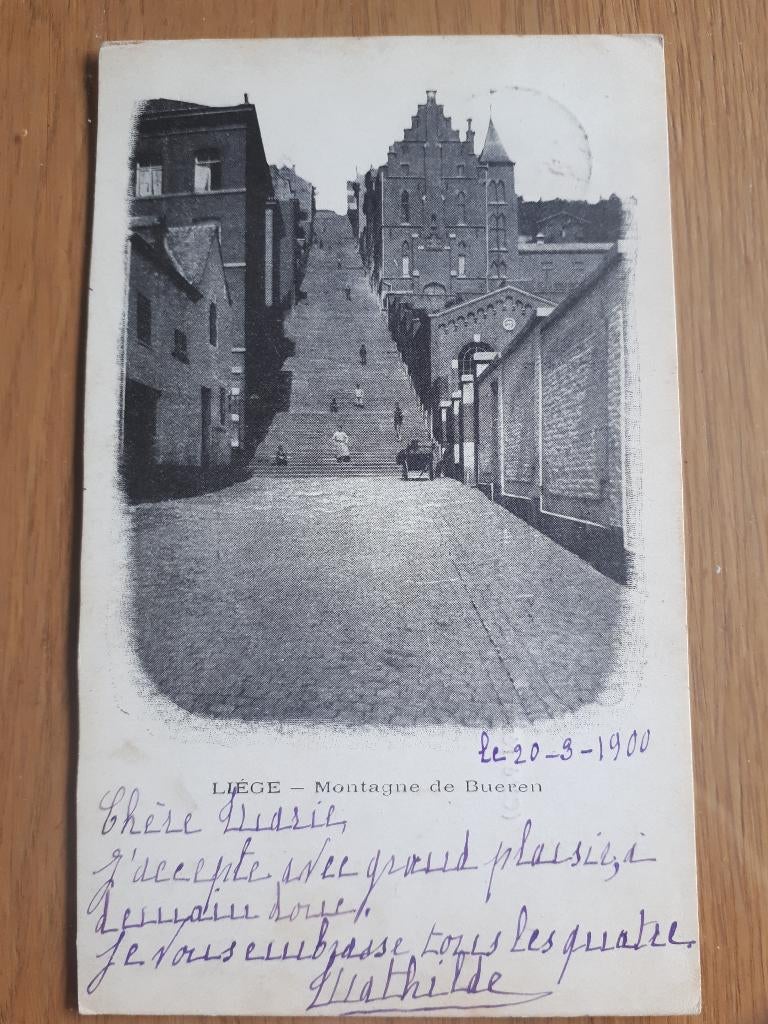 le 20-3-1900
LIÉGE – Montagne de Bueren
Chère Marie,
J'accepte avec grand plaisir, à
demain donc.
Je vous embrasse tous les quatre.
Mathilde